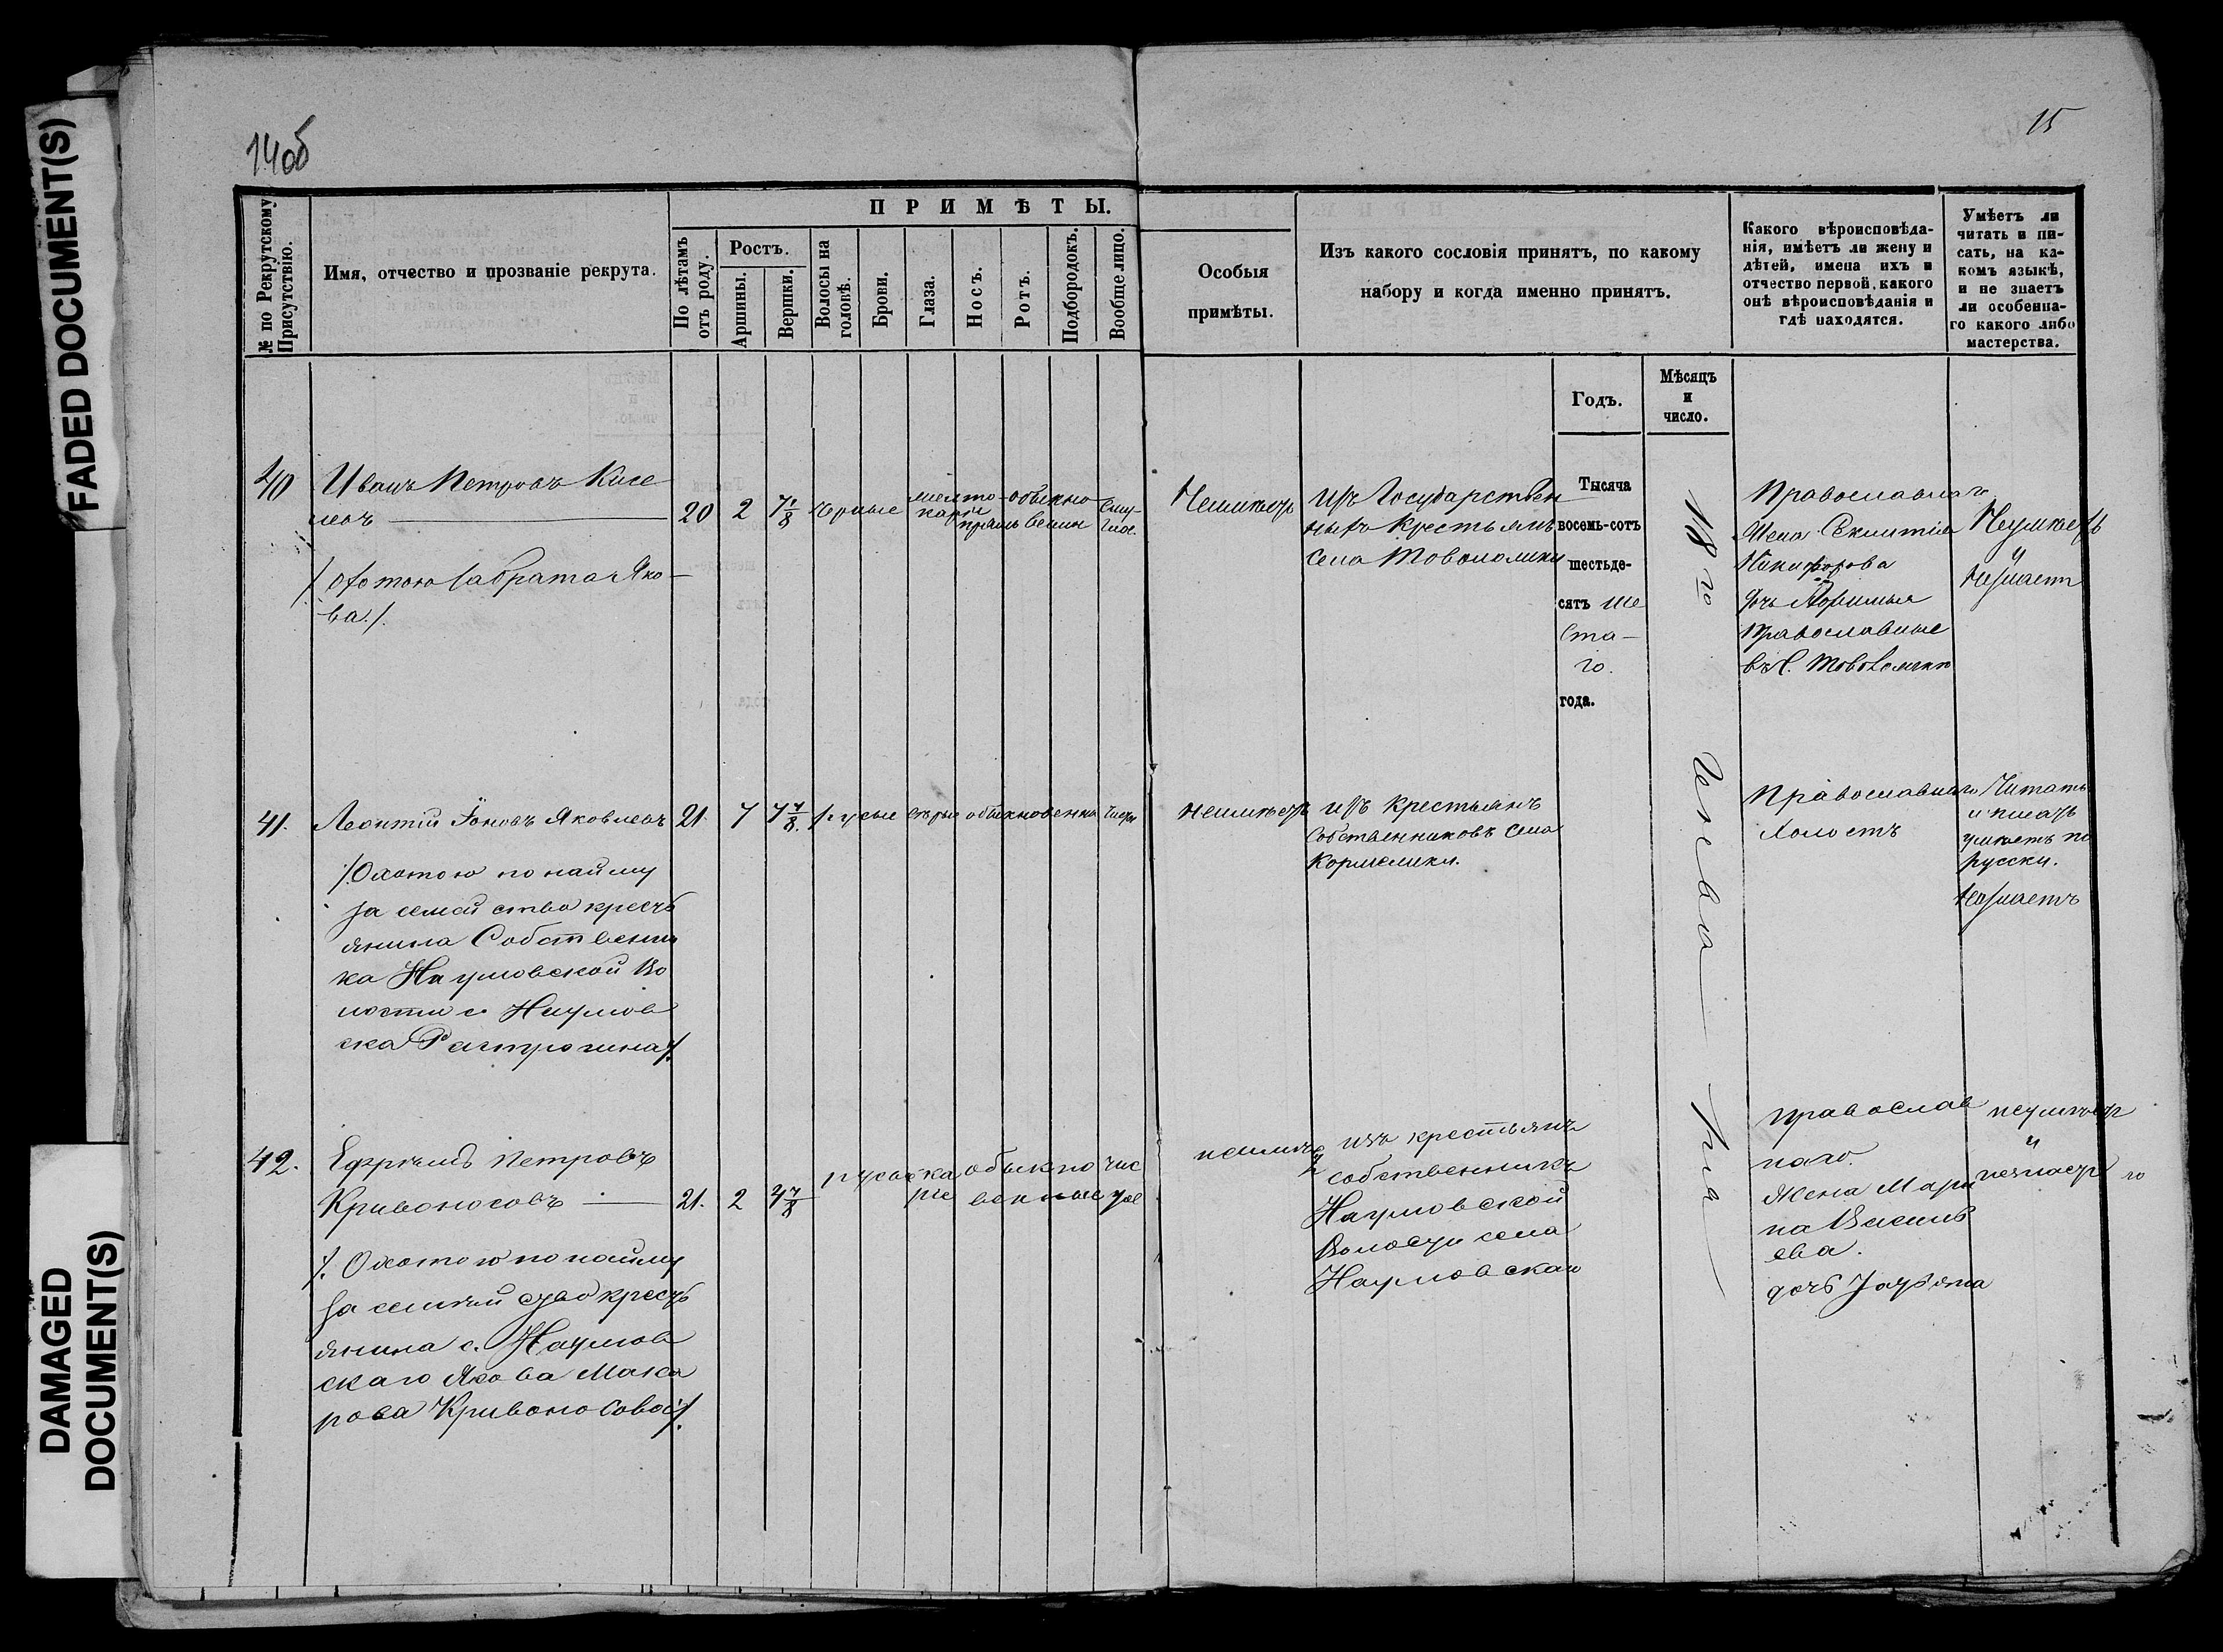 FADED DOCUMENT(S)
DAMAGED
DOCUMENT(S)
14об
15
№ по Рекрутскому
Присутствію.
Имя, отчество и прозваніе рекрута.
ПРИМѢТЫ.
По лѣтамъ
отъ роду.
Ростъ.
Аршины.
Вершки.
Волосы на
головѣ.
Брови.
Глаза.
Носъ.
Ротъ.
Подбородокъ.
Вообще лицо.
Особыя
примѣты.
Изъ какого сословія принятъ, по какому
набору и когда именно принятъ.
Какого вѣроисповѣда-
нія, имѣетъ ли жену и
дѣтей, имена ихъ и
отчество первой, какого
онѣ вѣроисповѣданія и
гдѣ находятся.
Умѣетъ ли
читать и пи-
сать, на ка-
комъ языкѣ,
и не знаетъ
ли особенна-
го какого либо
мастерства.
Годъ.
Мѣсяцъ
и
число.
40
Иванъ Петровъ Кисе
левъ
/Охотою за брата Яко-
ва./.
20
2
7/8
черные
желто
каріе
прямъ
обыкно
венны
сму-
глое.
Неимѣетъ
Изъ Государствен
ныхъ Крестьянъ
Села Товоломики
Тысяча
восемь-сотъ
шестьде-
сятъ ше
ста-
го.
года.
18 го
Генваря
Православнаго
Жена
Никифорова
дочь
Православные
въ С.
Неумѣетъ
и
незнаетъ
41.
Леонтій Іоновъ Яковлевъ
/.Охотою по найму
за семейство кресть
янина Собственни
ка Наумовской Во
лости с. Наумов
ска
21
7/8
русые
сѣрые
обыкновенны
Чистое
неимѣетъ
изъ крестьянъ
Собственниковъ села
Православнаго
Холостъ
Читать
и писать
умѣетъ по
русски.
Незнаетъ
42.
Ефремъ Петровъ
Кривоносовъ
/. Охотою по найму
за семейство кресть
янина с. Наумов
скаго Якова Мака
рова Кривоносова/.
21.
2
7/8
русые
ка
ріе
обыкно
венные
чис
тое
неимѣетъ
изъ крестьянъ
собственникъ
Наумовской
Волости села
Наумовскаго
православ
наго.
Жена Мари
на Василь
ева.
дочь Татьяна
неумѣетъ
и
незнаетъ